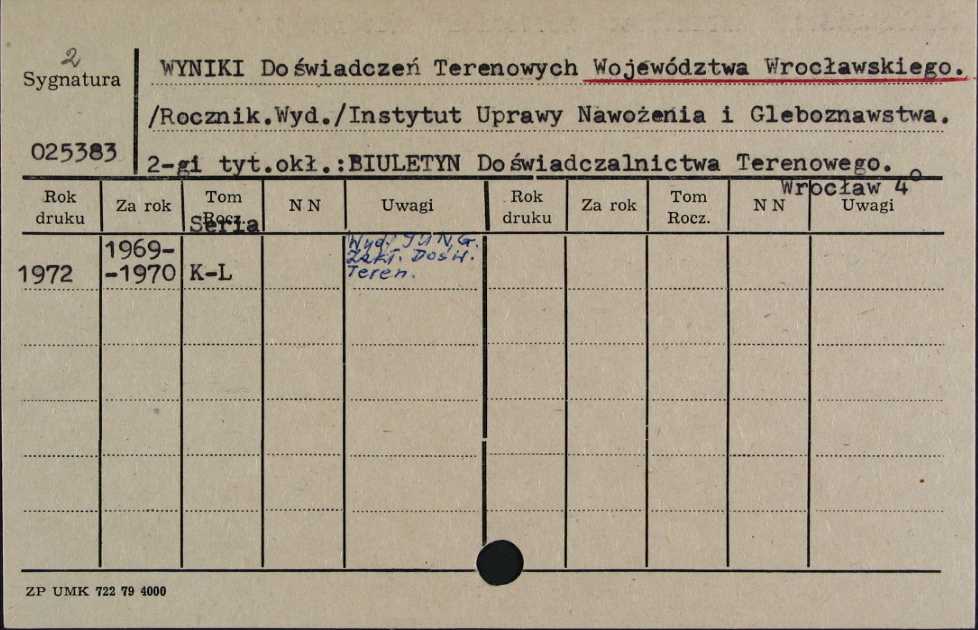 2
Sygnatura
025383
WYNIKI Doświadczeń Terenowych Województwa Wrocławskiego.
/Rocznik.Wyd./Instytut Uprawy Nawożenia i Gleboznawstwa.
2-gi tyt.okł.:BIULETYN Doświadczalnictwa Terenowego.
Wrocław 4°
Rok druku Za rok Tom Rocz. N N Uwagi Rok druku Za rok Tom Rocz. N N Uwagi
Seria
1972 1969--1970 K-L Wyd. IUN,G.
Zakł. Dośw.
Teren.
ZP UMK 722 79 4000